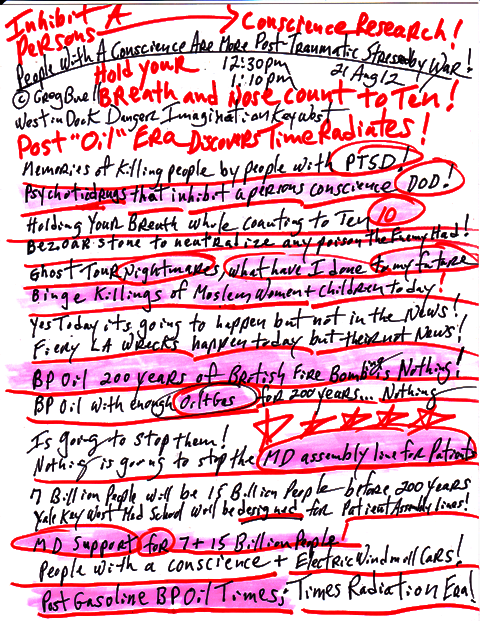 Inhibit A
Persons → Conscience Research!
People With A Conscience Are More Post-Traumatic Stressed by War!
Hold your 12:30pm
1:10pm 21 Aug 12
Breath and Nose count to Ten!
© Greg Buell
West in Dock Danger Imagination Key West
Post "Oil" Era Discovers Time Radiates!
Memories of Killing people by people with PTSD!
Psychotic drugs that inhibit a persons conscience DOD!
Holding Your Breath while counting to Ten 10
Bezoar stone to neutralize any poison The Enemy Had!
Ghost Tour Nightmares, what have I done to my future
Binge Killings of Moslem Women + children today!
Yes Today it's going to happen but not in the News!
Fiery LA Wrecks happen today but their not News!
BP Oil 200 years of British Fire Bombing is Nothing!
BP Oil with enough Oil + Gas for 200 years... Nothing
Is going to stop them!
Nothing is going to stop the MD assembly line for Patients
7 Billion People will be 15 Billion People before 200 years
Yale Key West Med School will be designed for Patient Assembly lines!
MD Support for 7 + 15 Billion People
People with a conscience + Electric Windmill Cars!
Post Gasoline BP Oil Times; Times Radiation Era!